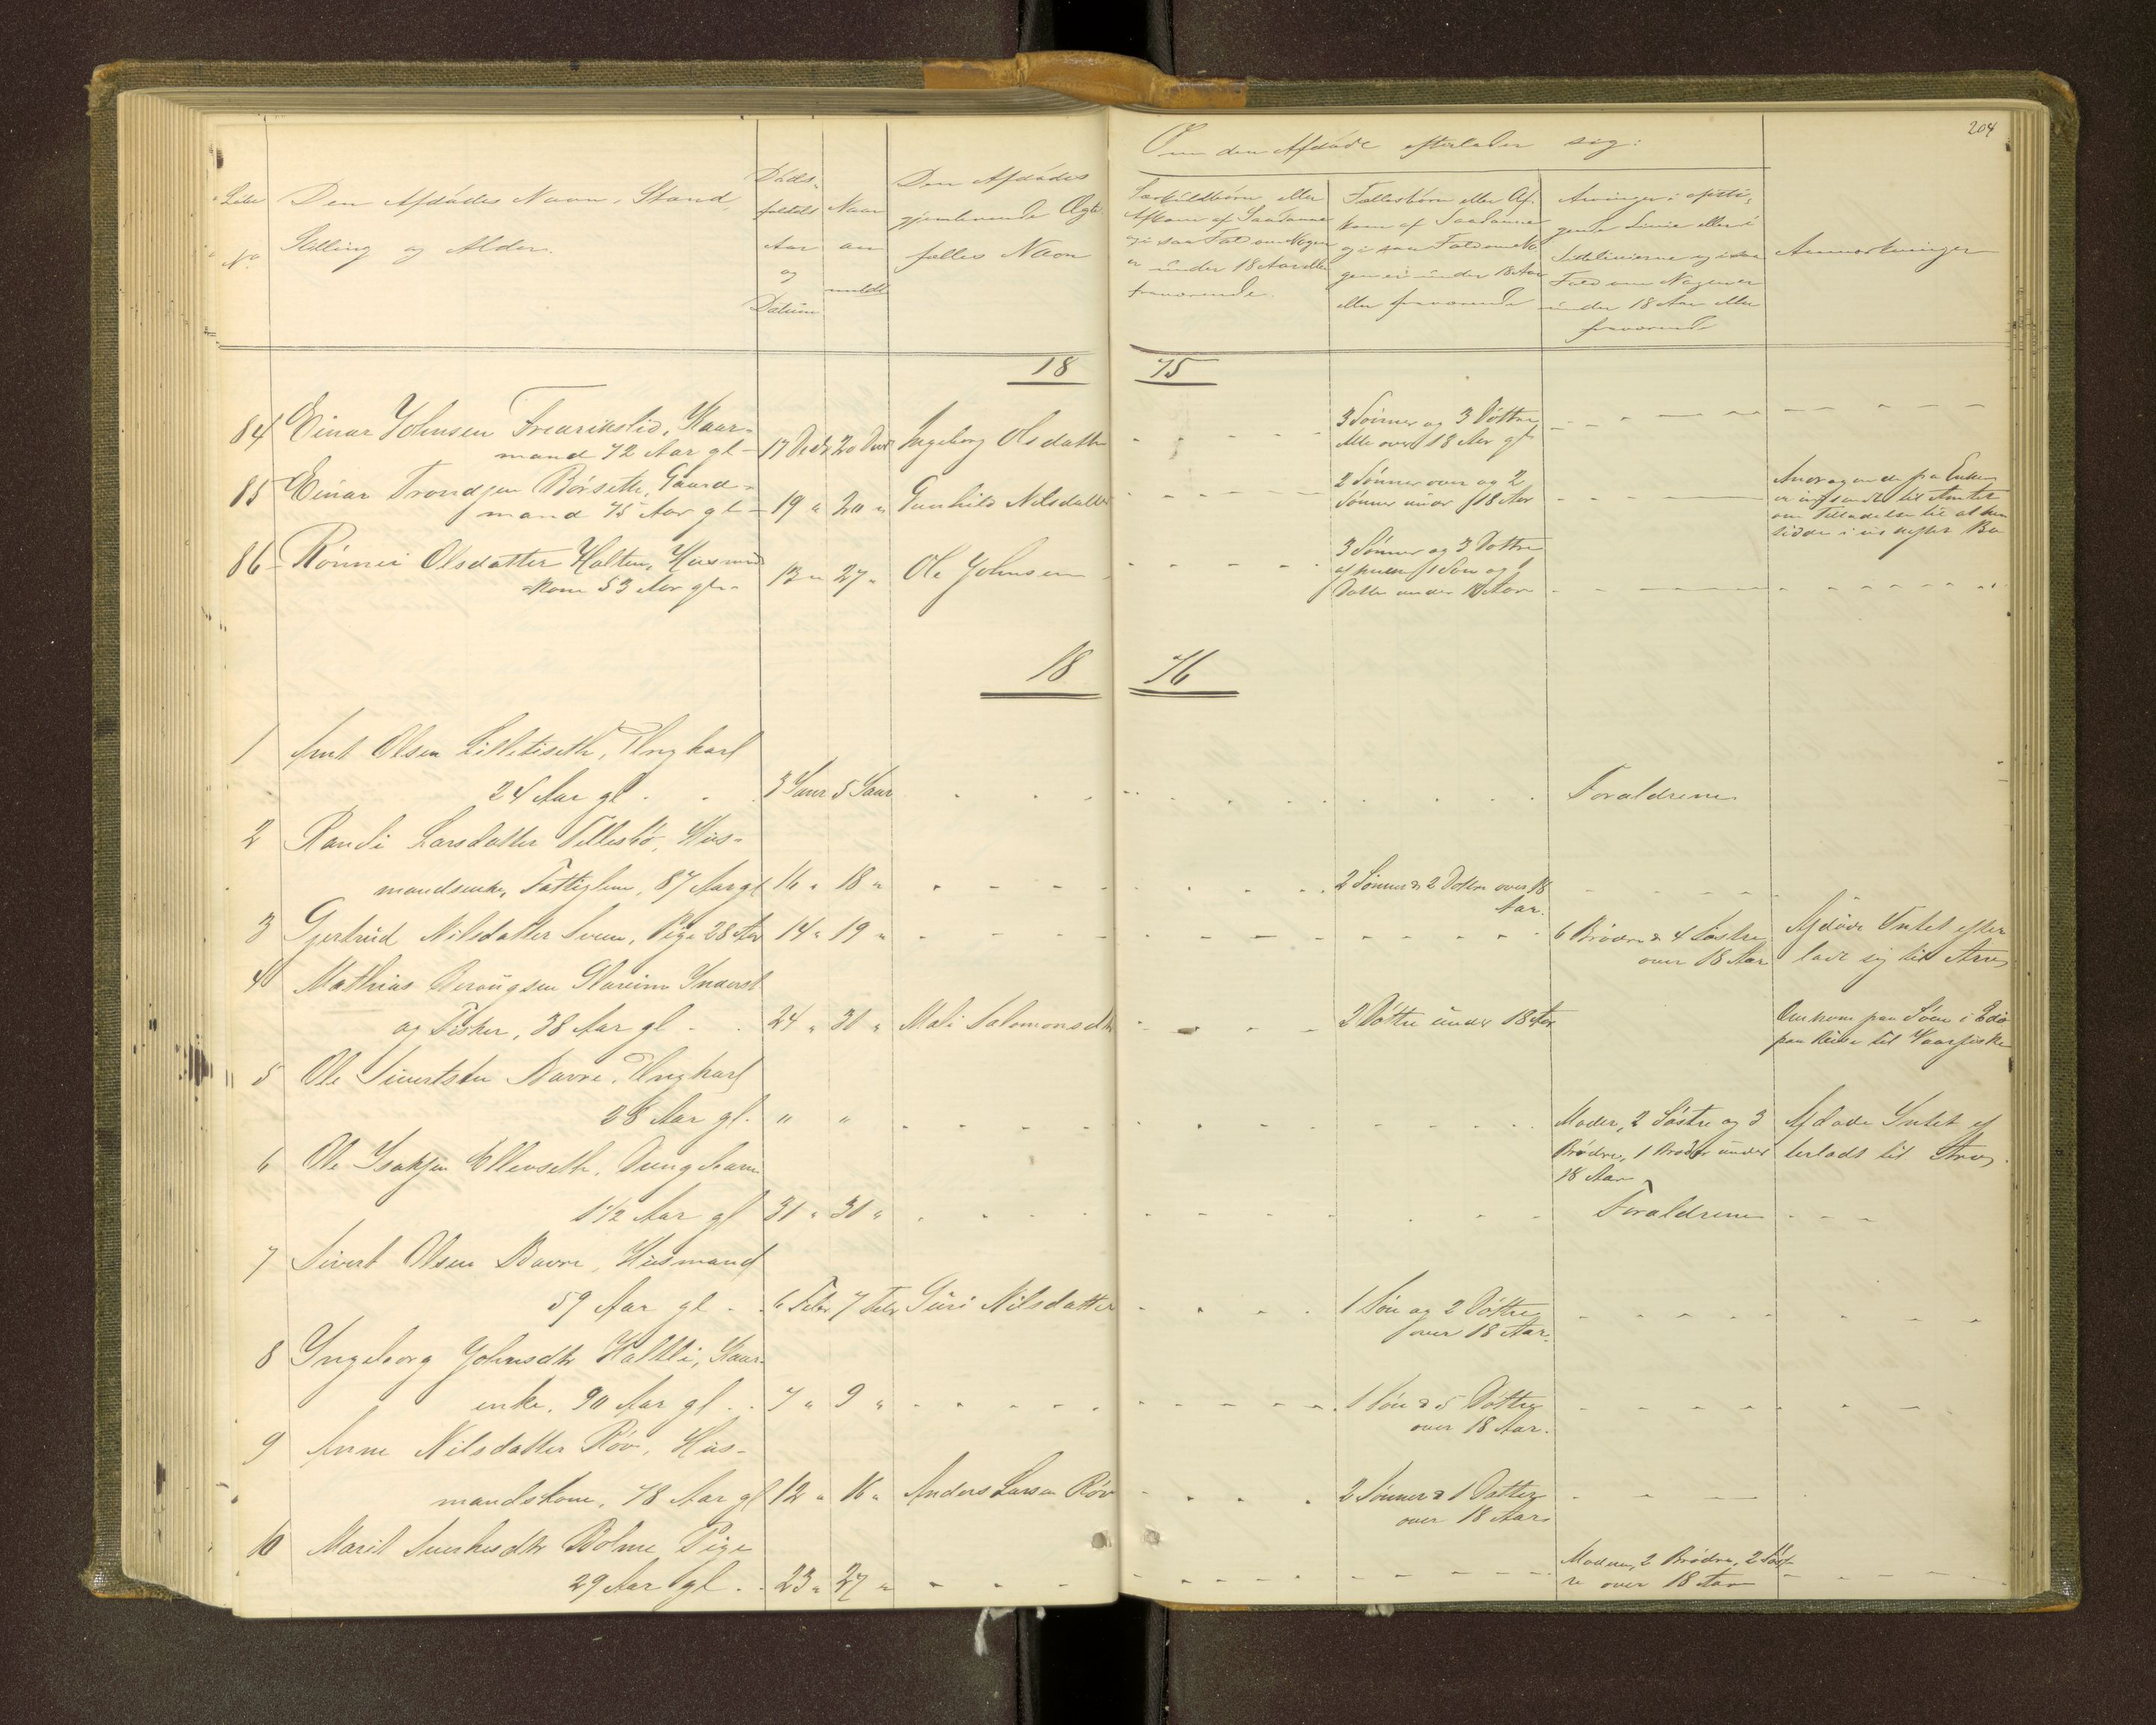 204
Om den Afdøde efterlader sig:
Løbe
No
Den Afdødes Navn, Stand,
Stilling og Alder.
Døds-
faldets
Aar
og
Datum
Naar
an
meldt
Den Afdødes
gjenlevende Ægte
fælles Navn
Særkuldbørn eller
Afkom af Saadanne
og i saa Fald om Nogen
er under 18 Aar eller
fraværende.
Fællesbørn eller Af-
kom af Saadanne
og i saa Fald om No-
gen er under 18 Aar
eller fraværende
Arvinger i opsti-
gende Linie eller i
Sidelinierne og i saa
Fald om Nogen er
under 18 Aar eller
fraværende
Anmærkninger
18 75
84 Einar Johnsen Fredrikslid, Kaar-
mand 72 Aar gl - 17 Decbr 20 Decbr Ingeborg Olsdatter
3 Sønner og 3 Døttre
Alle over 18 Aar gl
85 Einar Trondsen Børseth, Gaard-
mand 75 Aar gl - 19 " 20 " Gunhild Nilsdatter
2 Sønner over og 2
Sønner under 18 Aar
Andragende fra Enken
er indsendt til Amtet
om Tilladelse til at hen
sidde i uskiftet Bo
86 Rønnei Olsdatter Holten, Husmd
kone 53 Aar gl - 13 " 27 " Ole Johnsen
3 Sønner og 3 Døttre
af hvem 1 Søn og 1
Datter under 18 Aar
18 76
1 Arnt Olsen Lilletiseth, Ungkarl
24 Aar gl. 3 Janr 5 Janr Forældrene
2 Randi Larsdatter Villesbø, Hus-
mandsenke, Fattiglem, 87 Aar gl 16 " 18 " 2 Sønner & 2 Døttre over 18
Aar.
3 Gjertrud Nilsdatter Sveen, Pige 28 Aar 14 " 19 " 6 Brødre & 4 Søstre
over 18 Aar
Afdøde Intet efter
ladt sig til Arv
4 Mathias Berougsen Glareim Inderst
og Fisker, 38 Aar gl - 24 " 31 " Mali Salomonsdtr 2 Døttre under 18 Aar
Omkom paa Søen i Edø
paa Reise til Vaarfiske
5 Ole Sivertsen Bavre, Ungkarl
28 Aar gl. " "
Moder, 2 Søstre og 3
Brødre, 1 Broder under
18 Aar
Afdøde Intet ef
terladt til Arv.
6 Ole Isaksen Ellevseth, Dungebarn
1 1/2 Aar gl 31 " 31 " Forældrene
7 Sivert Olsen Bavre, Husmand
59 Aar gl - 6 Febr 7 Febr Guri Nilsdatter 1 Søn og 2 Døttre
over 18 Aar.
8 Ingeborg Johnsdtr Haltli, Kaar-
enke, 90 Aar gl. 7 " 9 " 1 Søn & 5 Døttre
over 18 Aar.
9 Anne Nilsdatter Røv, Hus-
mandskone, 78 Aar gl 12 " 16 " Anders Larsen Røv 2 Sønner & 1 Datter
over 18 Aar
10 Marit Sverkesdtr Bolme Pige
29 Aar gl. 23 " 27 "
Moderen, 2 Brødre, 2 Søst-
re over 18 Aar